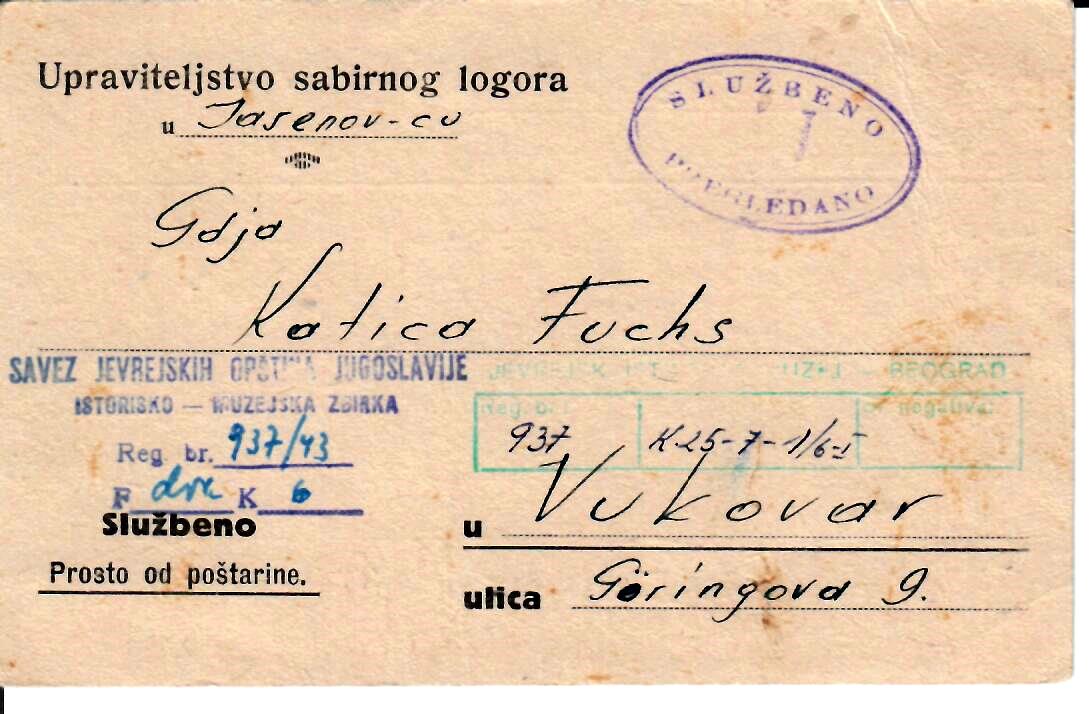 Upraviteljstvo sabirnog logora
u Jasenov-cu
SLUŽBENO
1
PREGLEDANO
Gdja
Katica Fuchs
SAVEZ JEVREJSKIH OPŠTINA JUGOSLAVIJE
ISTORISKO — MUZEJSKA ZBIRKA
Reg. br. 937/43
F dva K 6
JEVREJSK IST UZEJ — BEOGRAD
Reg. br. negativa:
937 K-25-7-1/6-I
Službeno
Prosto od poštarine.
u Vukovar
ulica Göringova 9.